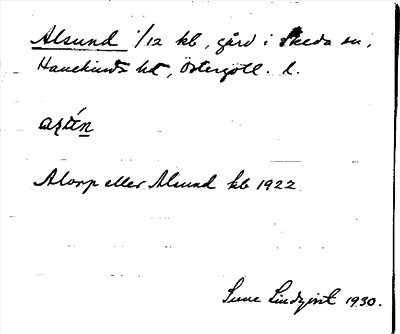 Alsund 1/12 kb, gård i Skeda sn,
Hanekinds hd, Östergötl. l.
Alorp eller Alsund kb 1922
Sune Lindqvist 1930.